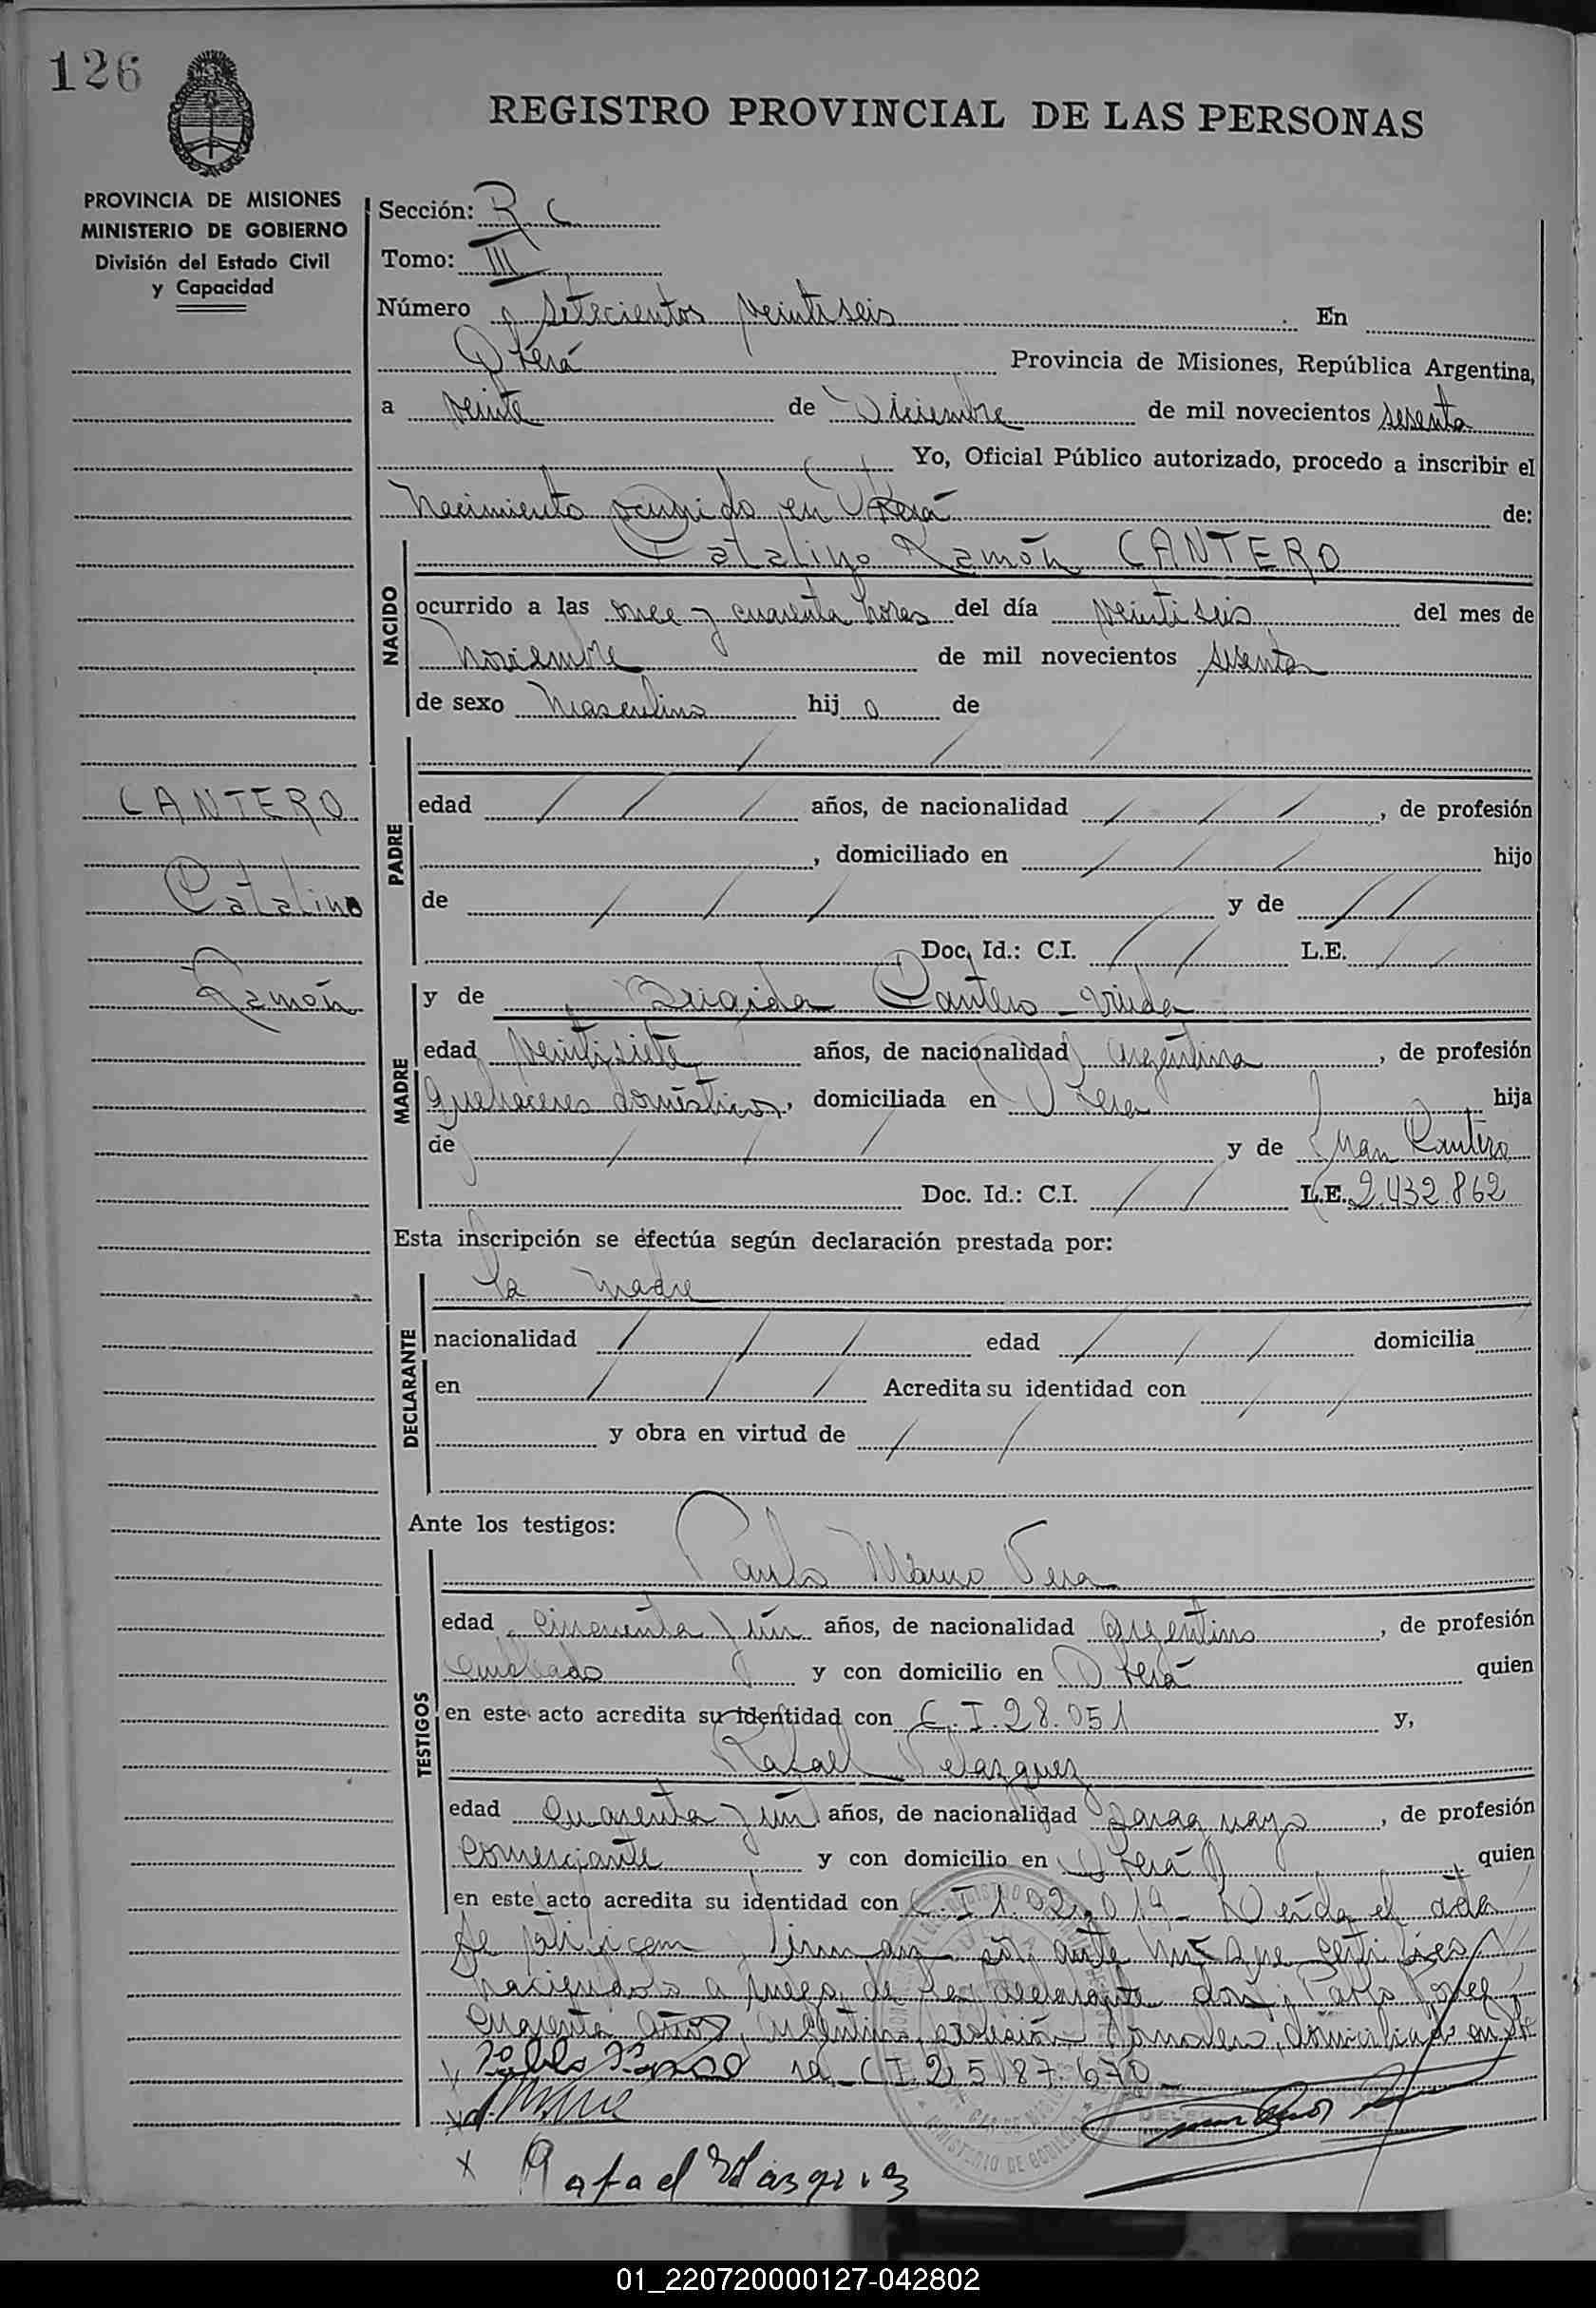 126
REGISTRO PROVINCIAL DE LAS PERSONAS
PROVINCIA DE MISIONES
MINISTERIO DE GOBIERNO
División del Estado Civil
y Capacidad
Sección: R C
Tomo: III
Número setecientos veintiseis En
Oberá Provincia de Misiones, República Argentina,
a veinte de Diciembre de mil novecientos sesenta
Yo, Oficial Público autorizado, procedo a inscribir el
nacimiento ocurrido en Oberá de:
NACIDO
Catalino Ramón CANTERO
ocurrido a las once y cuarenta horas del día veintiseis del mes de
Noviembre de mil novecientos sesenta
de sexo Masculino hij o de
CANTERO
Catalino
Ramón
PADRE
edad / / / años, de nacionalidad / / / , de profesión
, domiciliado en / / / hijo
de / / / y de / /
Doc. Id.: C.I. / / L.E. / /
MADRE
y de Brigida Cantero - viuda
edad veintisiete años, de nacionalidad argentina, de profesión
quehaceres domésticos, domiciliada en Oberá hija
de / / / y de Juan Cantero
Doc. Id.: C.I. / / L.E. 2.432.862
Esta inscripción se efectúa según declaración prestada por:
DECLARANTE
la madre
nacionalidad / / / edad / / / domicilia
en / / / Acredita su identidad con / /
y obra en virtud de / /
Ante los testigos:
TESTIGOS
Vera
edad cincuenta y un años, de nacionalidad argentino, de profesión
empleado y con domicilio en Oberá quien
en este acto acredita su identidad con C.I. 28.051 y,
Rafael Velazquez
edad cuarenta y un años, de nacionalidad paraguayo, de profesión
comerciante y con domicilio en Oberá quien
en este acto acredita su identidad con C.I. Leída el acta
se ratifican, firman por ante mí que certifico
haciendolo a ruego de la declarante don Pablo
cuarenta años, argentino, profesión jornalero, domiciliado en
C I 2.587.670
Rafael Velasquez
MINISTERIO DE GOBIERNO
01_220720000127-042802